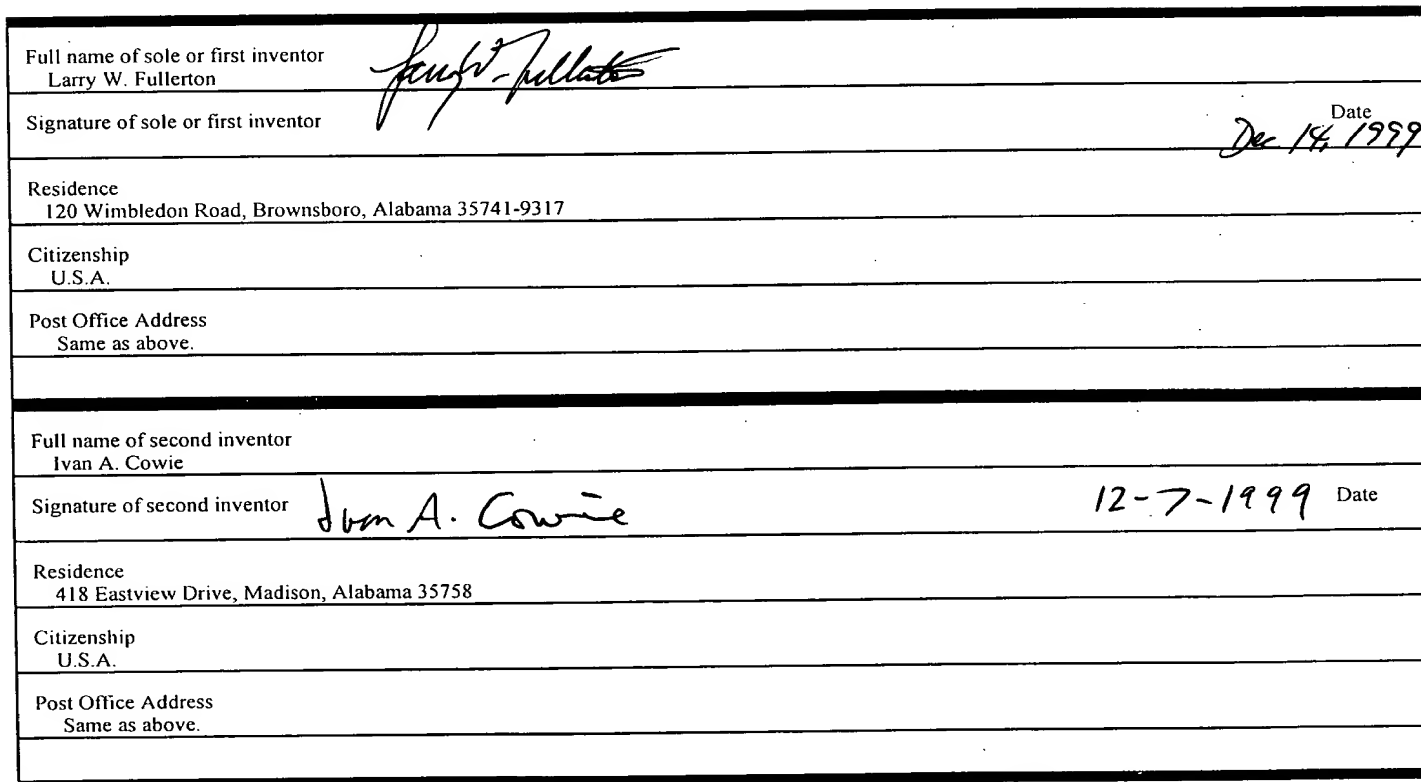 Full name of sole or first inventor
Larry W. Fullerton
Larry W. Fullerton
Signature of sole or first inventor
Date
Dec 14, 1999
Residence
120 Wimbledon Road, Brownsboro, Alabama 35741-9317
Citizenship
U.S.A.
Post Office Address
Same as above.
Full name of second inventor
Ivan A. Cowie
Signature of second inventor Ivan A. Cowie 12-7-1999 Date
Residence
418 Eastview Drive, Madison, Alabama 35758
Citizenship
U.S.A.
Post Office Address
Same as above.